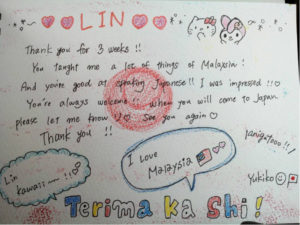 LIN
Thank you for 3 weeks !!
You taught me a lot of things of Malaysia!
And you're good at speaking Japanese!! I was impressed!!
You're always welcome!! When you will come to Japan
please let me know :) See you again
Thank you !!
Lin
kawaii
I Love
Malaysia
Yukiko
Terima ka Shi!